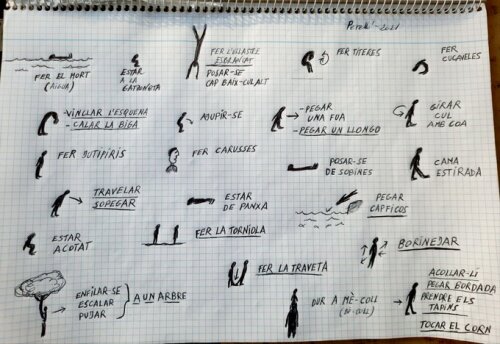 Perelló - 2021
FER EL MORT
(AIGUA)
ESTAR
A LA
GATZONETA
FER L'ULLASTRE
ESBRANCAT
POSAR-SE
CAP BAIX-CUL ALT
FER TITERES
FER
CUCAVELES
-VINCLAR L'ESQUENA
-CALAR LA BIGA
AJUPIR-SE
-PEGAR
UNA FUA
-PEGAR UN LLONGO
GIRAR
CUL
AMB COA
FER BOTIPIRIS
FER CARUSSES
POSAR-SE
DE SOBINES
CAMA
ESTIRADA
TRAVELAR
SOPEGAR
ESTAR
DE PANXA
PEGAR
CAPFICOS
ESTAR
ACOTAT
FER LA TORNIOLA
BORINEJAR
ENFILAR-SE
ESCALAR
PUJAR
A UN ARBRE
FER LA TRAVETA
DUR A MÈ-COLL
ACOLLAR-LI
PEGAR BORDADA
PRENDRE ELS
TAPINS
TOCAR EL CORN